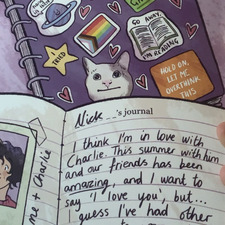 GO AWAY
I'M READING
TIRED
HOLD ON,
LET ME
OVERTHINK
THIS
Nick 's journal
I think I'm in love with
Charlie. This summer with him
and our friends has been
amazing, and I want to
say 'I love you', but...
I guess I've had other
me + Charlie